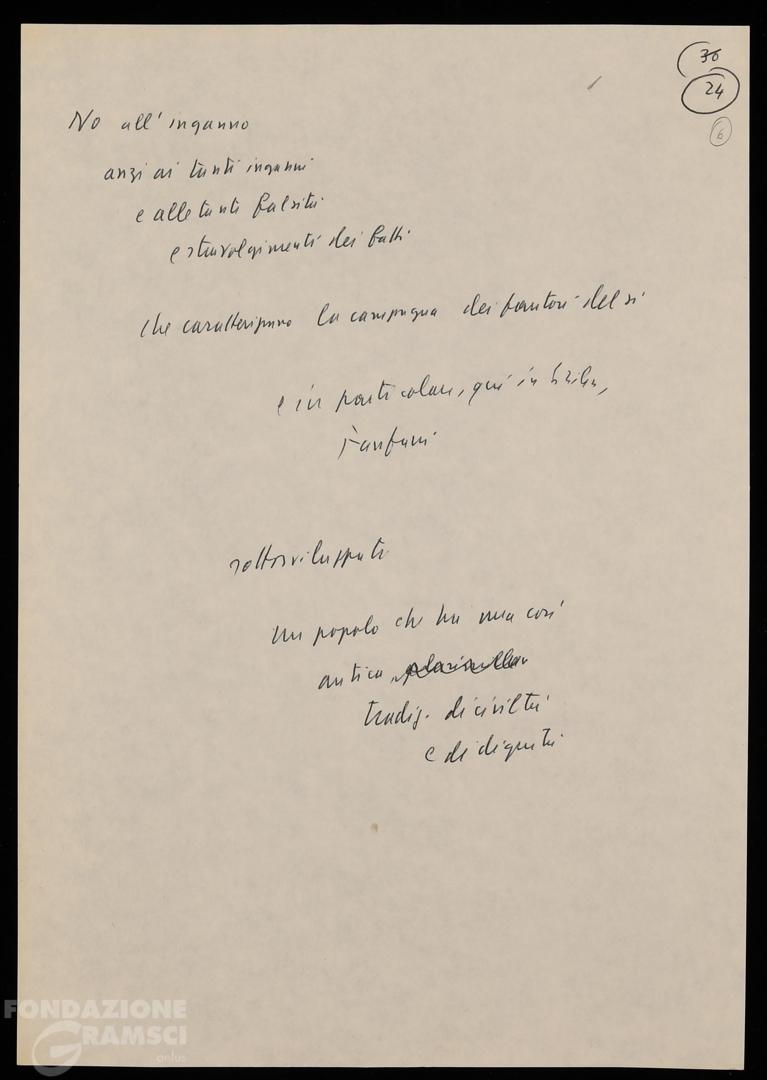 36
24
6
No all'inganno
anzi ai tanti inganni
e alle tante falsità
e stravolgimenti dei fatti
che caratterizzano la campagna dei fautori del sì
e in particolare, qui in Sicilia,
Fanfani
sottosviluppati
un popolo che ha una così
antica
tradiz. di civiltà
e di dignità
FONDAZIONE
GRAMSCI
onlus